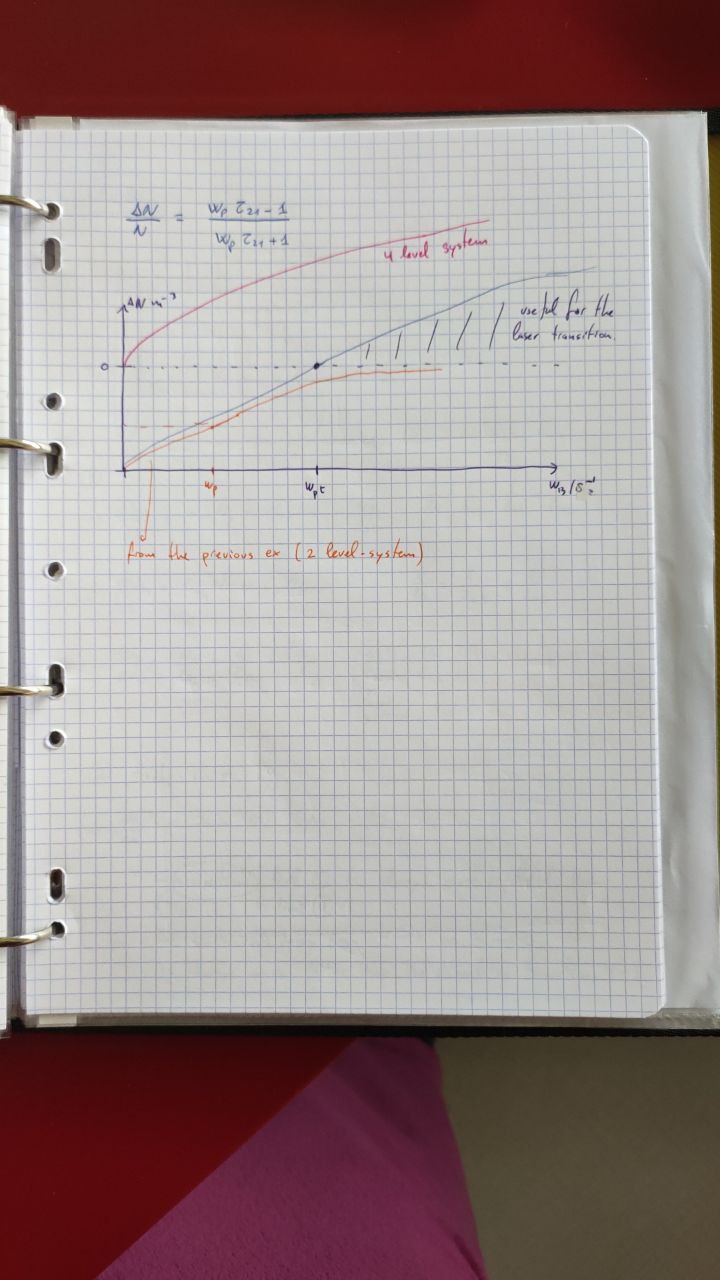 ΔN/N = (Wp τ21 - 1)/(Wp τ21 + 1)
4 level system
ΔN m⁻³
useful for the
laser transition.
0
Wp
Wpt
W13/s⁻¹
from the previous ex (2 level-system)